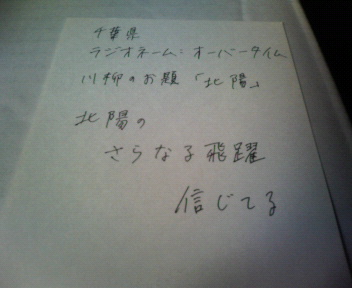 千葉県
ラジオネーム:オーバータイム
川柳のお題「北陽」
北陽の
さらなる飛躍
信じてる